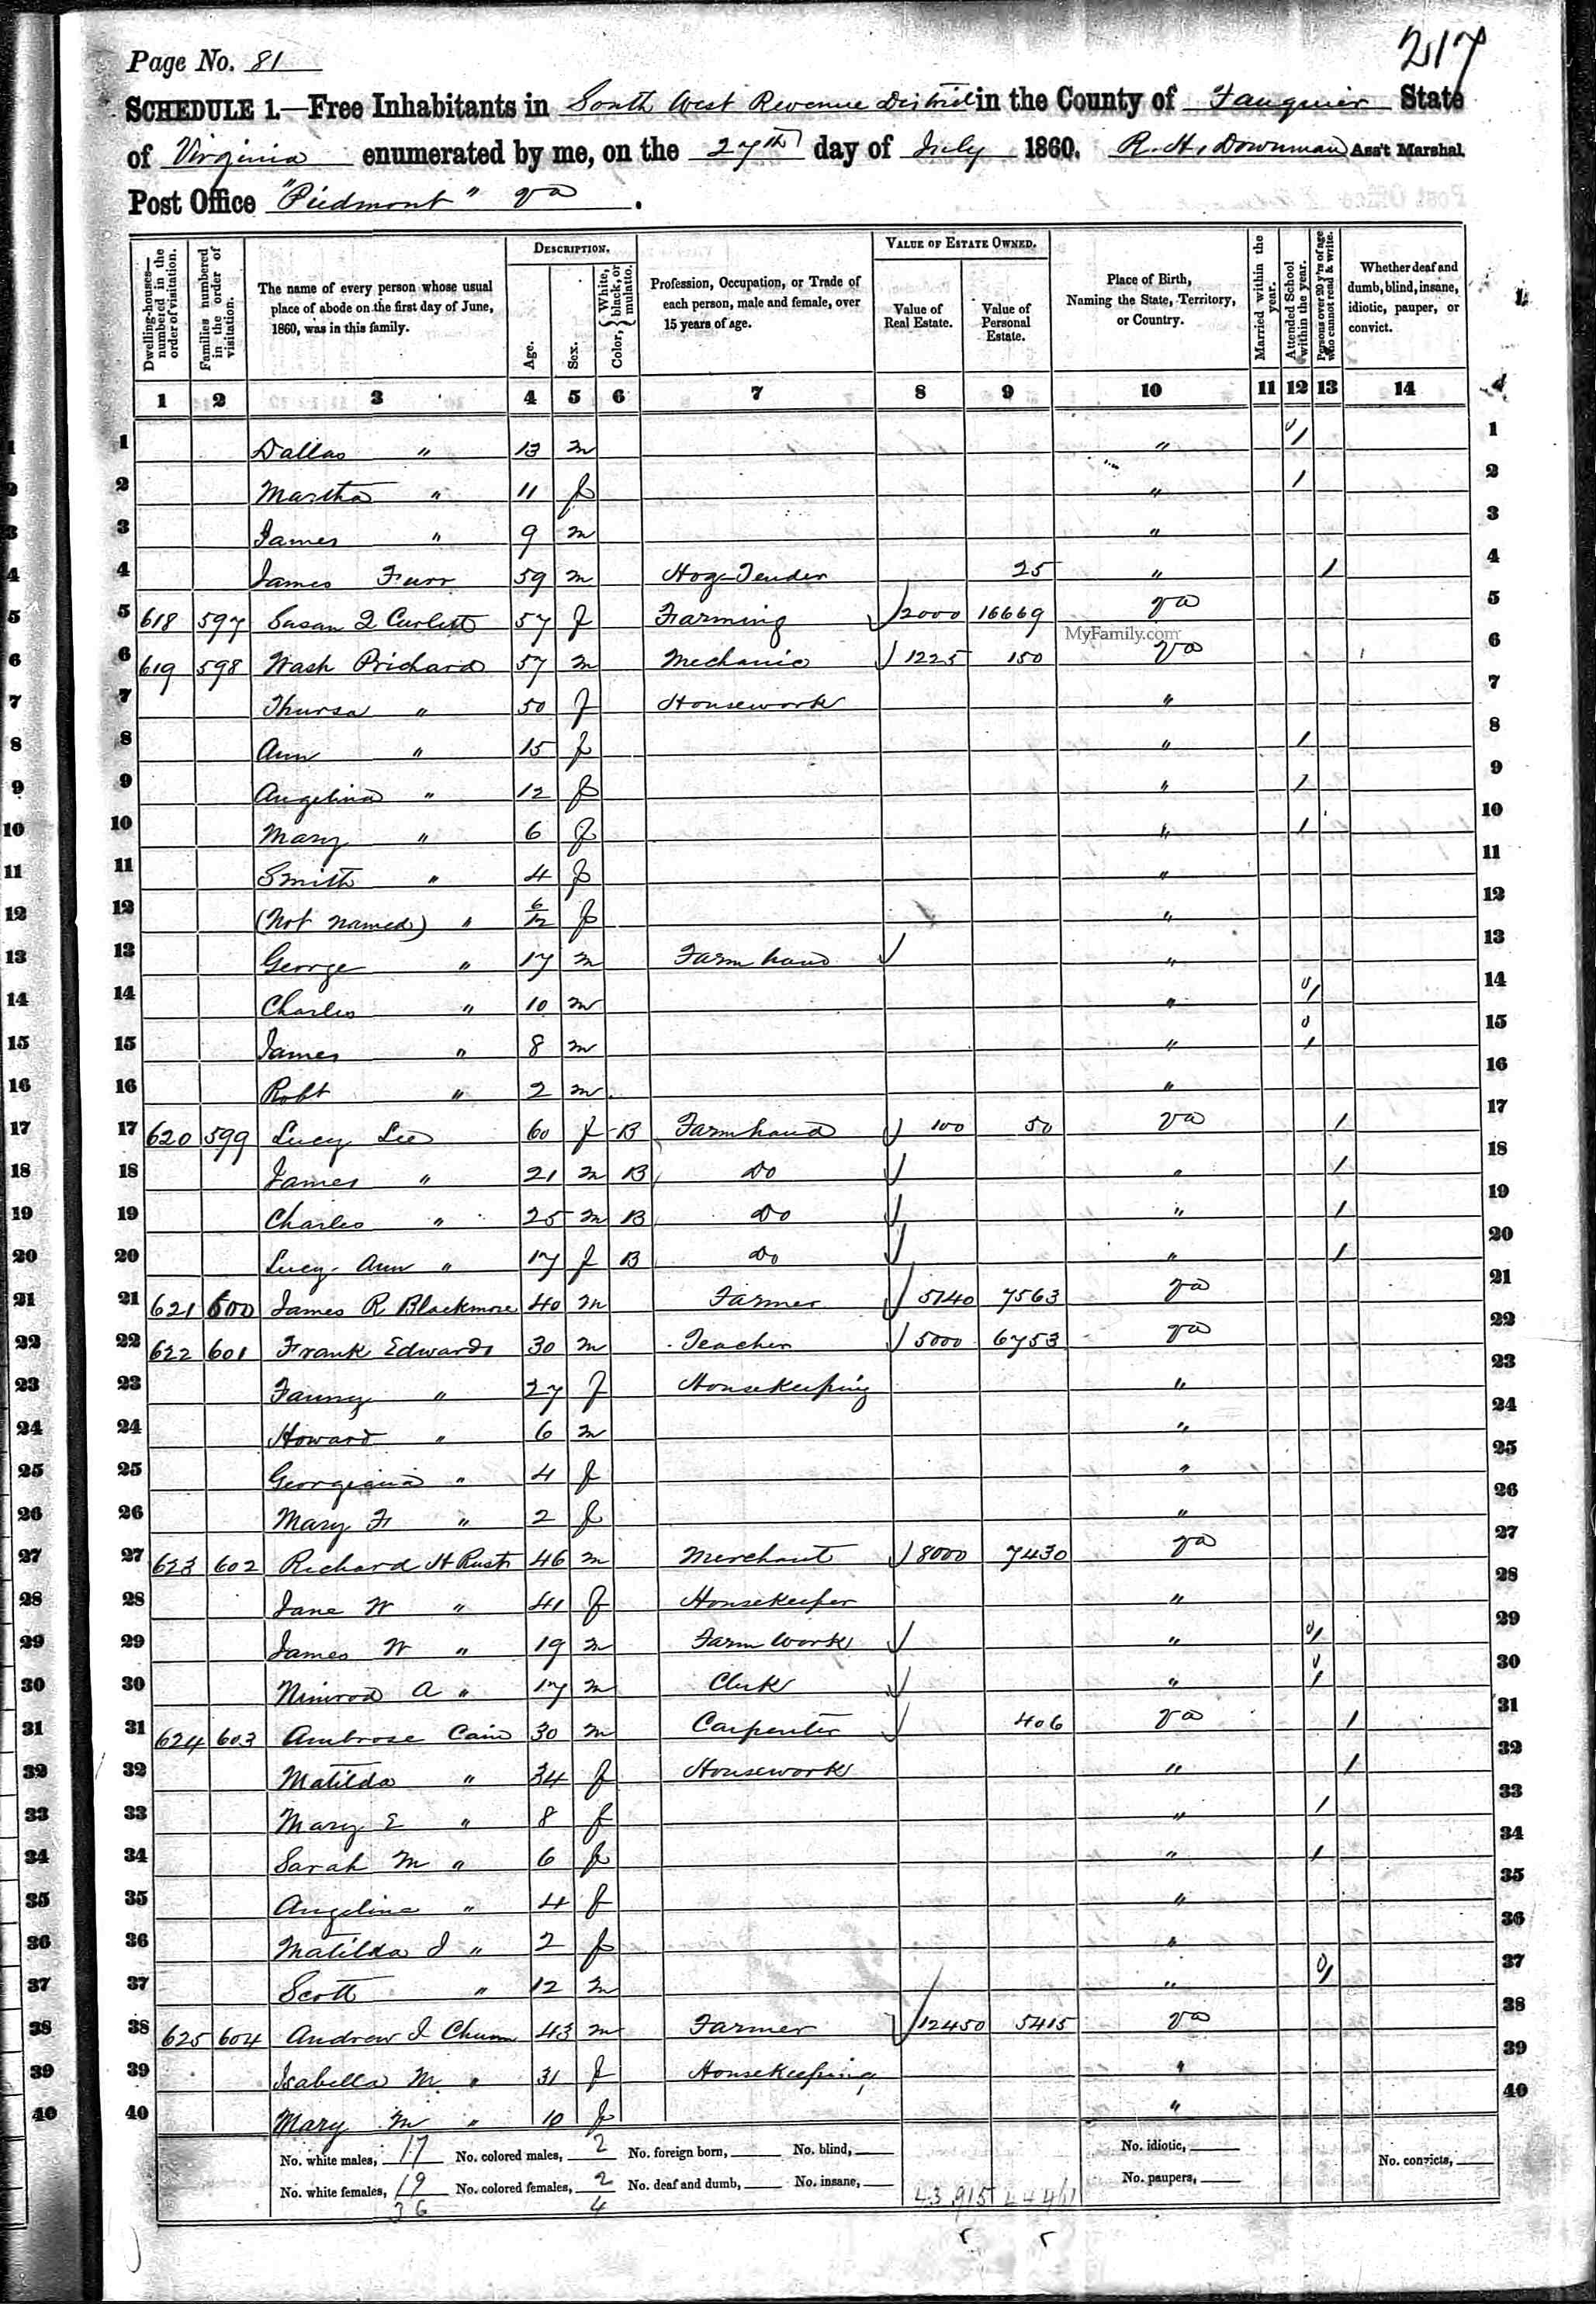 217
Page No. 81
SCHEDULE 1.—Free Inhabitants in South West Revenue District in the County of Fauquier State
of Virginia enumerated by me, on the 27th day of July 1860. R. H. Downman Ass't Marshal.
Post Office "Piedmont" Va.
Dwelling-houses—numbered in the order of visitation.
Families numbered in the order of visitation.
The name of every person whose usual place of abode on the first day of June, 1860, was in this family.
DESCRIPTION.
Age.
Sex.
Color, {White, black, or mulatto.
Profession, Occupation, or Trade of each person, male and female, over 15 years of age.
VALUE OF ESTATE OWNED.
Value of Real Estate.
Value of Personal Estate.
Place of Birth, Naming the State, Territory, or Country.
Married within the year.
Attended School within the year.
Persons over 20 y'rs of age who cannot read & write.
Whether deaf and dumb, blind, insane, idiotic, pauper, or convict.
1 2 3 4 5 6 7 8 9 10 11 12 13 14
1 Dallas " 13 m " / 1
2 Martha " 11 f " / 2
3 James " 9 m " 3
4 James Furr 59 m Hog-Tender 25 " / 4
5 618 597 Susan Q Curlett 57 f Farming 2000 16669 Va 5
MyFamily.com
6 619 598 Wash Prichard 57 m Mechanic 1225 150 Va 6
7 Thursa " 50 f Housework " 7
8 Ann " 15 f " / 8
9 Angelina " 12 f " / 9
10 Mary " 6 f " / 10
11 Smith " 4 f " 11
12 (Not named) " 6/12 f " 12
13 George " 17 m Farm hand " 13
14 Charles " 10 m " / 14
15 James " 8 m " / 15
16 Robt " 2 m " 16
17 620 599 Lucy Lee 60 f B Farmhand 100 50 Va / 17
18 James " 21 m B Do " / 18
19 Charles " 25 m B Do " / 19
20 Lucy Ann " 17 f B Do " / 20
21 621 600 James R Blackmore 40 m Farmer 5140 7563 Va 21
22 622 601 Frank Edwards 30 m Teacher 5000 6753 Va 22
23 Fanny " 27 f Housekeeping " 23
24 Howard " 6 m " 24
25 Georgiana " 4 f " 25
26 Mary F " 2 f " 26
27 623 602 Richard H Rust 46 m Merchant 8000 7430 Va 27
28 Jane W " 41 f Housekeeper " 28
29 James W " 19 m Farm Work " / 29
30 Nimrod A " 17 m Clerk " / 30
31 624 603 Ambrose Cain 30 m Carpenter 406 Va / 31
32 Matilda " 34 f Housework " / 32
33 Mary E " 8 f " / 33
34 Sarah M " 6 f " / 34
35 Angeline " 4 f " 35
36 Matilda J " 2 f " 36
37 Scott " 12 m " / 37
38 625 604 Andrew J Chunn 43 m Farmer 12450 5415 Va 38
39 Isabella M " 31 f Housekeeping " 39
40 Mary M " 10 f " 40
No. white males, 17 No. colored males, 2 No. foreign born, No. blind, No. idiotic,
No. white females, 19 No. colored females, 2 No. deaf and dumb, No. insane, No. paupers, No. convicts,
36 4 43,915